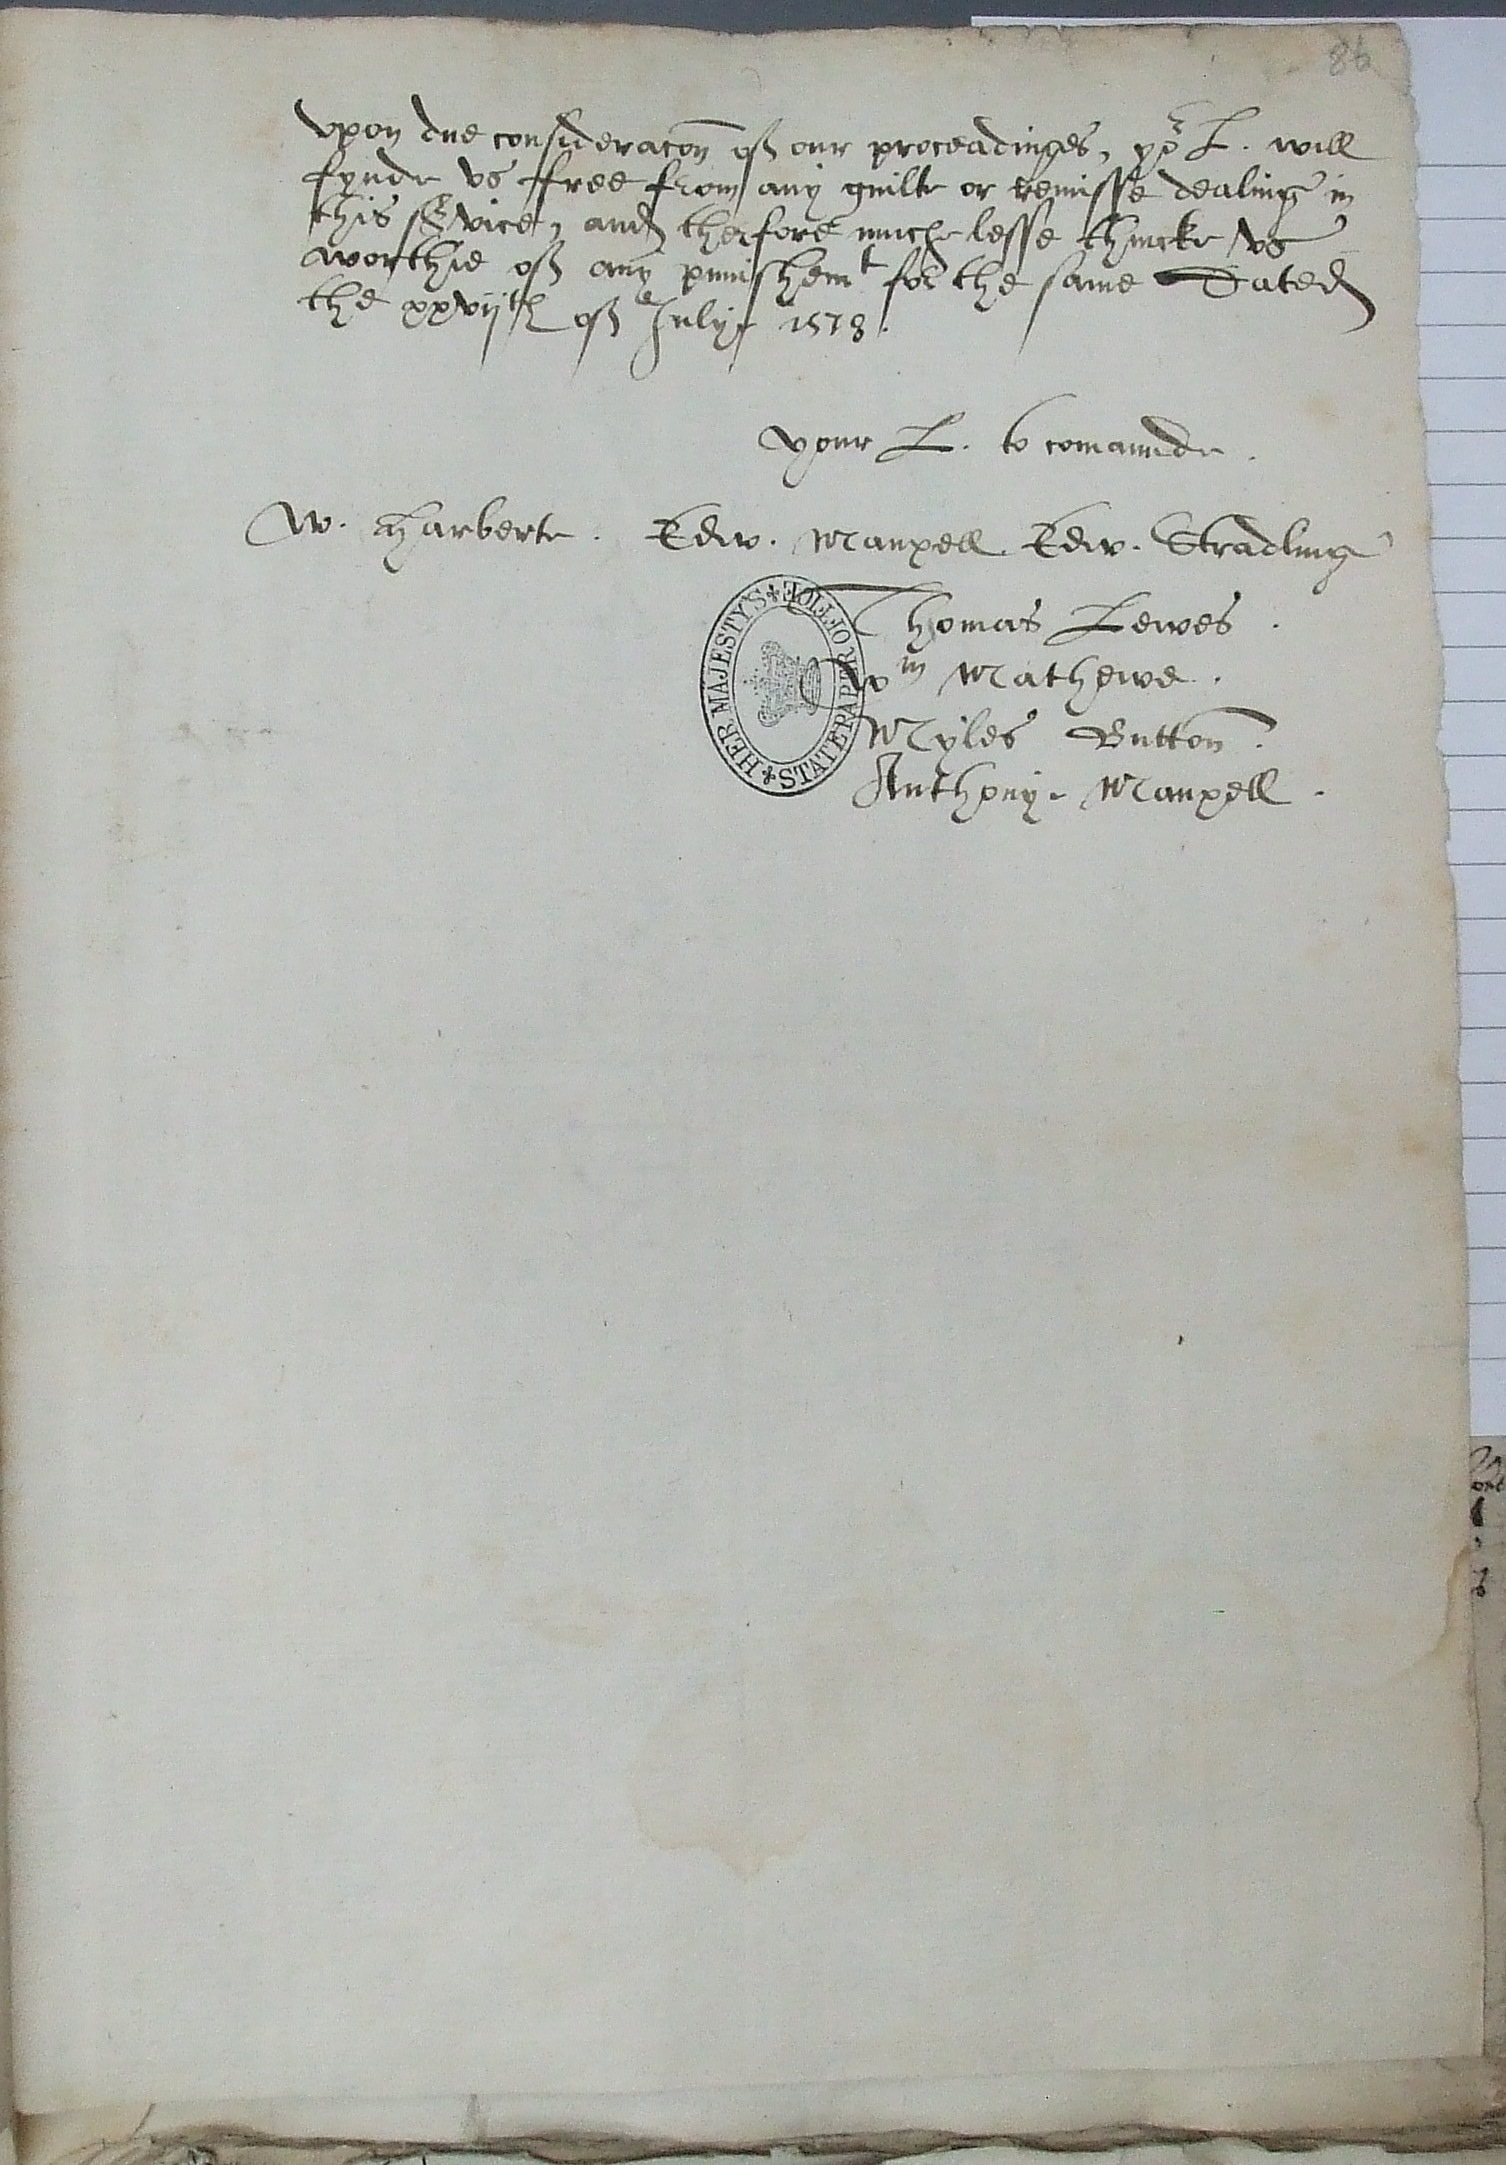 86
vpon due consideracon of our proceadinges, yor L. will
fynde vs ffree from any guilte or remisse dealing in
this service, and therfore muche lesse thincke vs
worthie of any punishemt for the same Dated
the xxvijth of Julye 1578.
your L. to comaunde.
W. Harberte. Edw. Manxell. Edw. Stradling
Thomas Lewes.
Wm Mathewe.
Myles Button.
Anthony Manxell.
HER MAJESTY'S STATE PAPER OFFICE